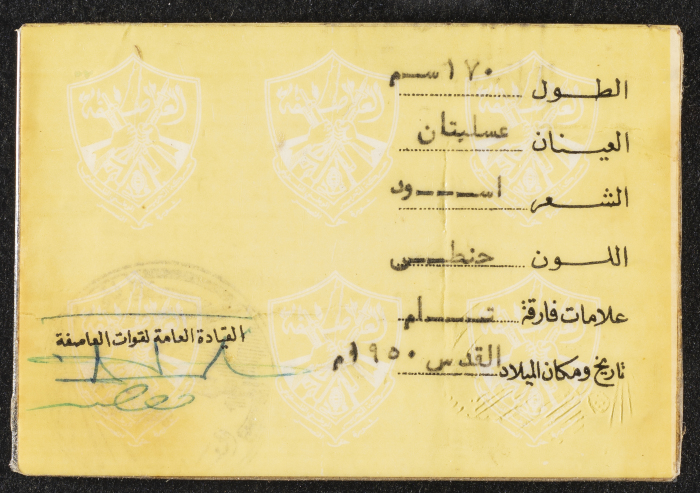 الطول ١٧٠ سم
العينان عسليتان
الشعر اسود
اللون حنطي
علامات فارقة تام
تاريخ ومكان الميلاد القدس ١٩٥٠م
القيادة العامة لقوات العاصفة
العاصفة